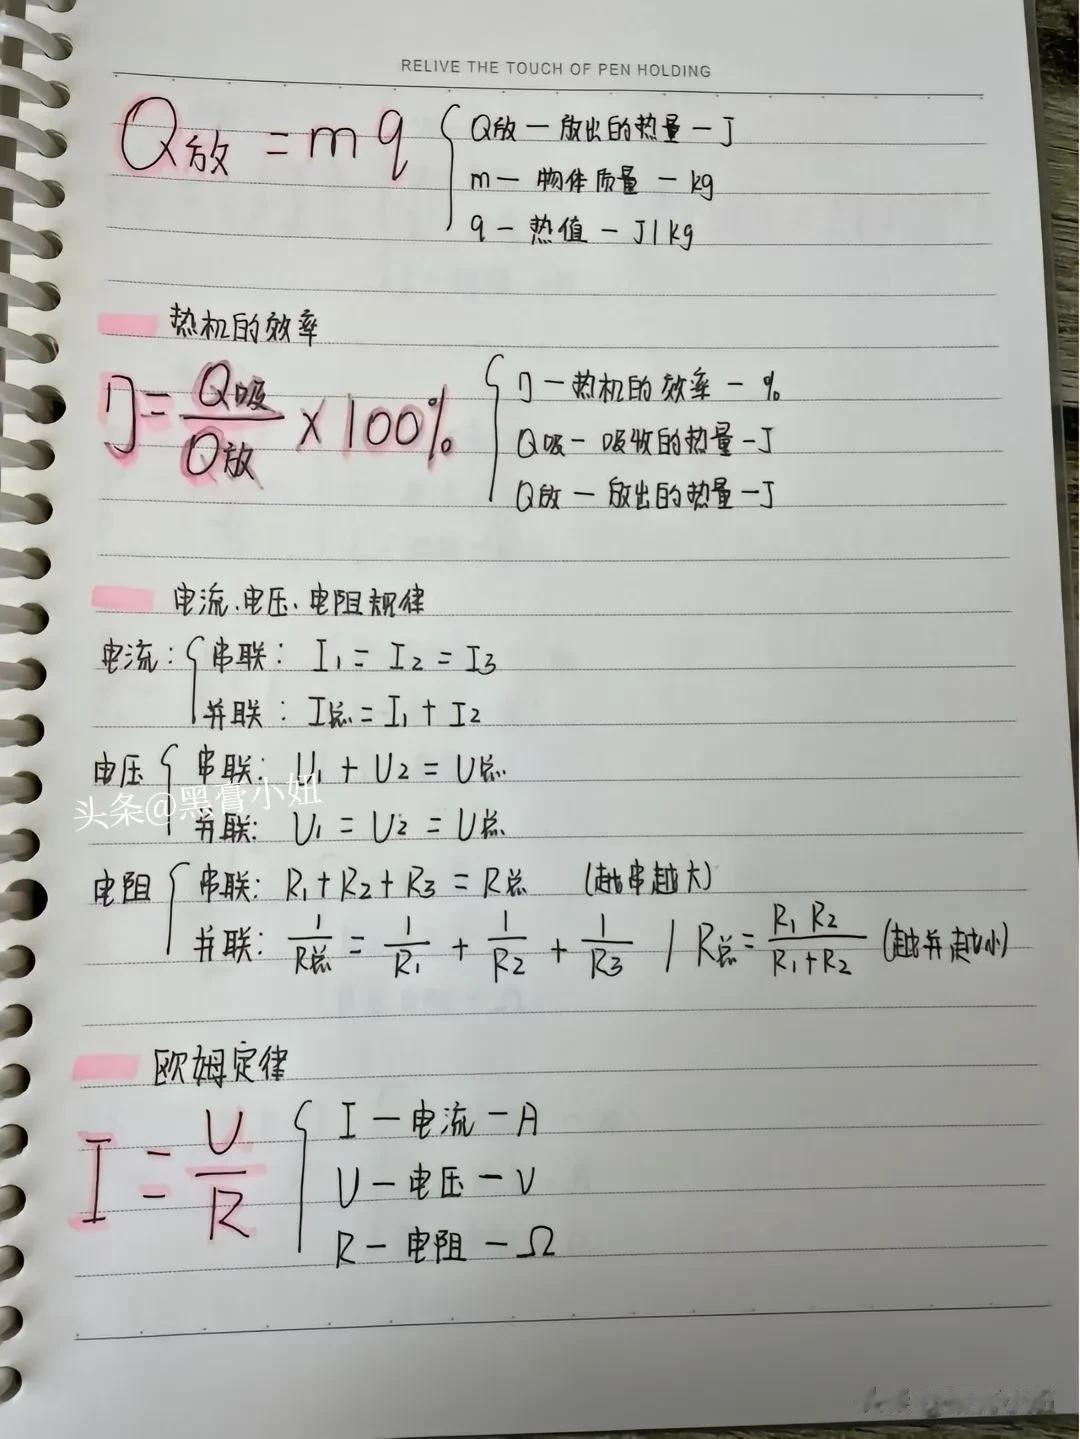 RELIVE THE TOUCH OF PEN HOLDING
Q放 = mq
Q放 — 放出的热量 — J
m — 物体质量 — kg
q — 热值 — J/kg
热机的效率
η = Q吸/Q放 × 100%
η — 热机的效率 — %
Q吸 — 吸收的热量 — J
Q放 — 放出的热量 — J
电流、电压、电阻规律
电流: 串联: I1 = I2 = I3
并联: I总 = I1 + I2
电压 串联: U1 + U2 = U总
并联: U1 = U2 = U总
头条@黑膏小妞
电阻 串联: R1 + R2 + R3 = R总 (越串越大)
并联: 1/R总 = 1/R1 + 1/R2 + 1/R3 / R总 = R1R2/R1+R2 (越并越小)
欧姆定律
I = U/R
I — 电流 — A
U — 电压 — V
R — 电阻 — Ω